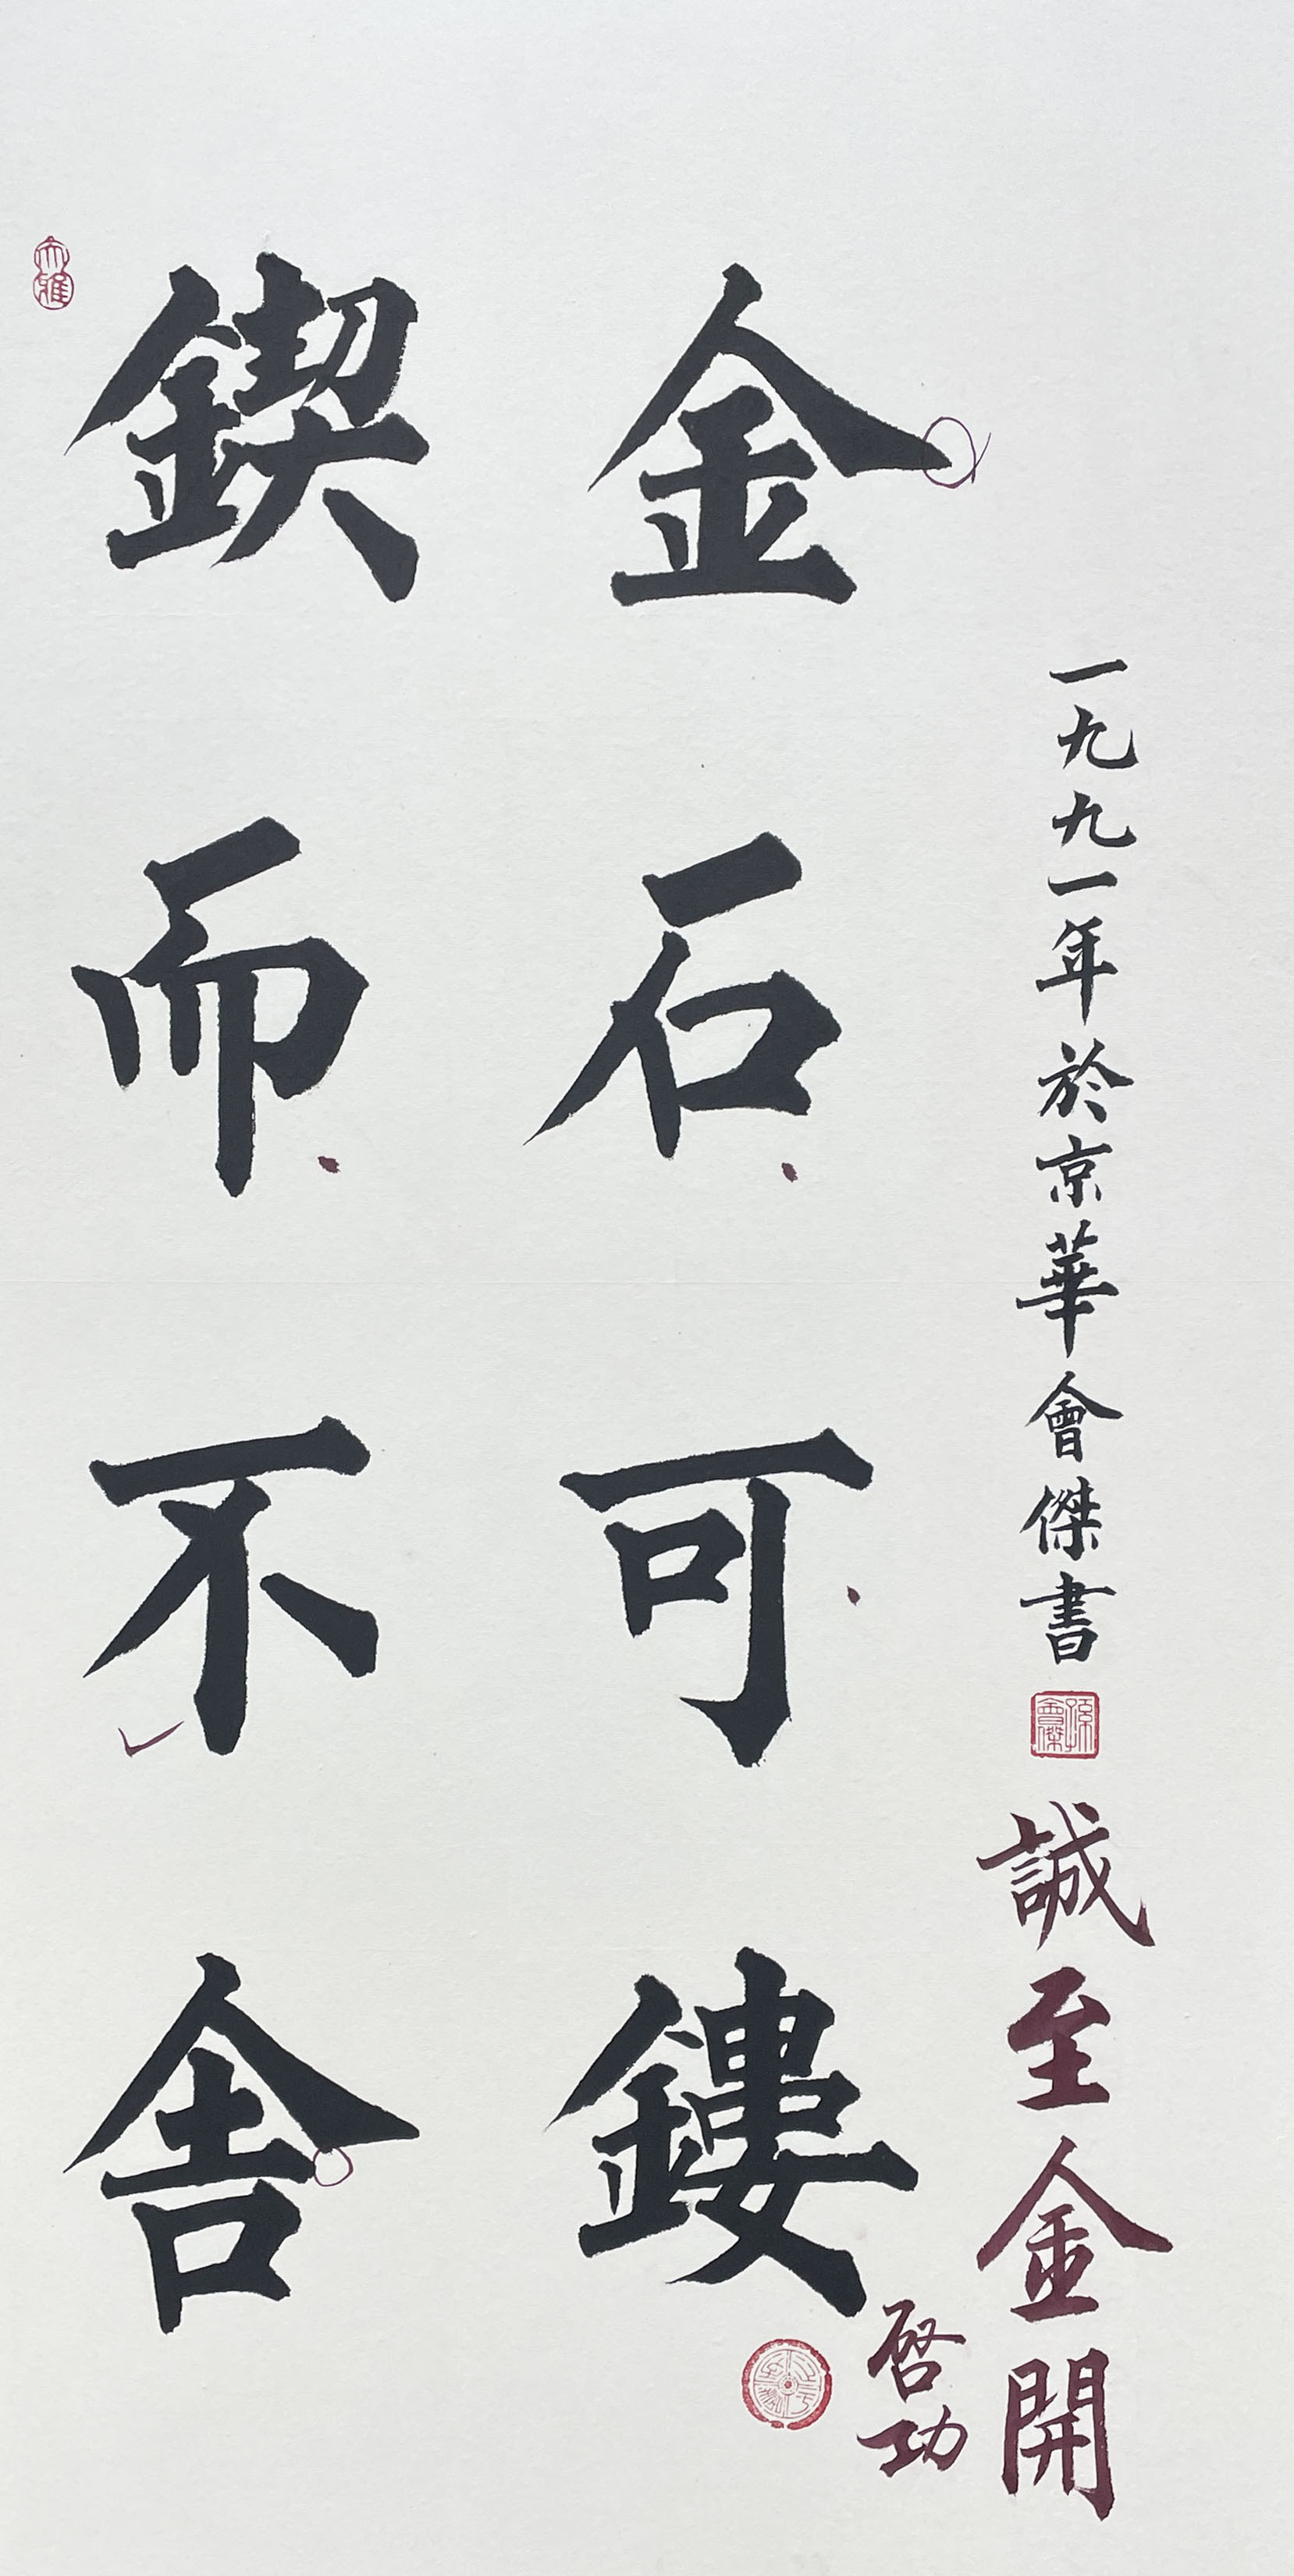 鍥而不舍
金石可鏤
一九九一年於京華會傑書
孫會傑
誠至金開
啓功
大雅